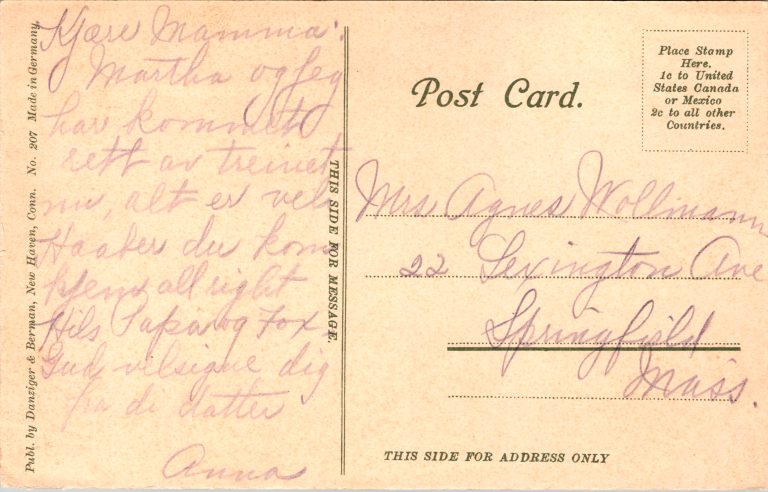 Kjære Mamma:
Martha og Jeg
har kommet
rett av treinet
nu, alt er vel.
Haaber du kom
hjem all right
Hils Papa og Fox
Gud velsigne dig
fra di datter
Anna
Publ. by Danziger & Berman, New Haven, Conn. No. 207 Made in Germany.
THIS SIDE FOR MESSAGE.
Post Card.
Place Stamp
Here.
1c to United
States Canada
or Mexico
2c to all other
Countries.
Mrs Agnes Wollmann
22 Lexington Ave
Springfield
Mass.
THIS SIDE FOR ADDRESS ONLY